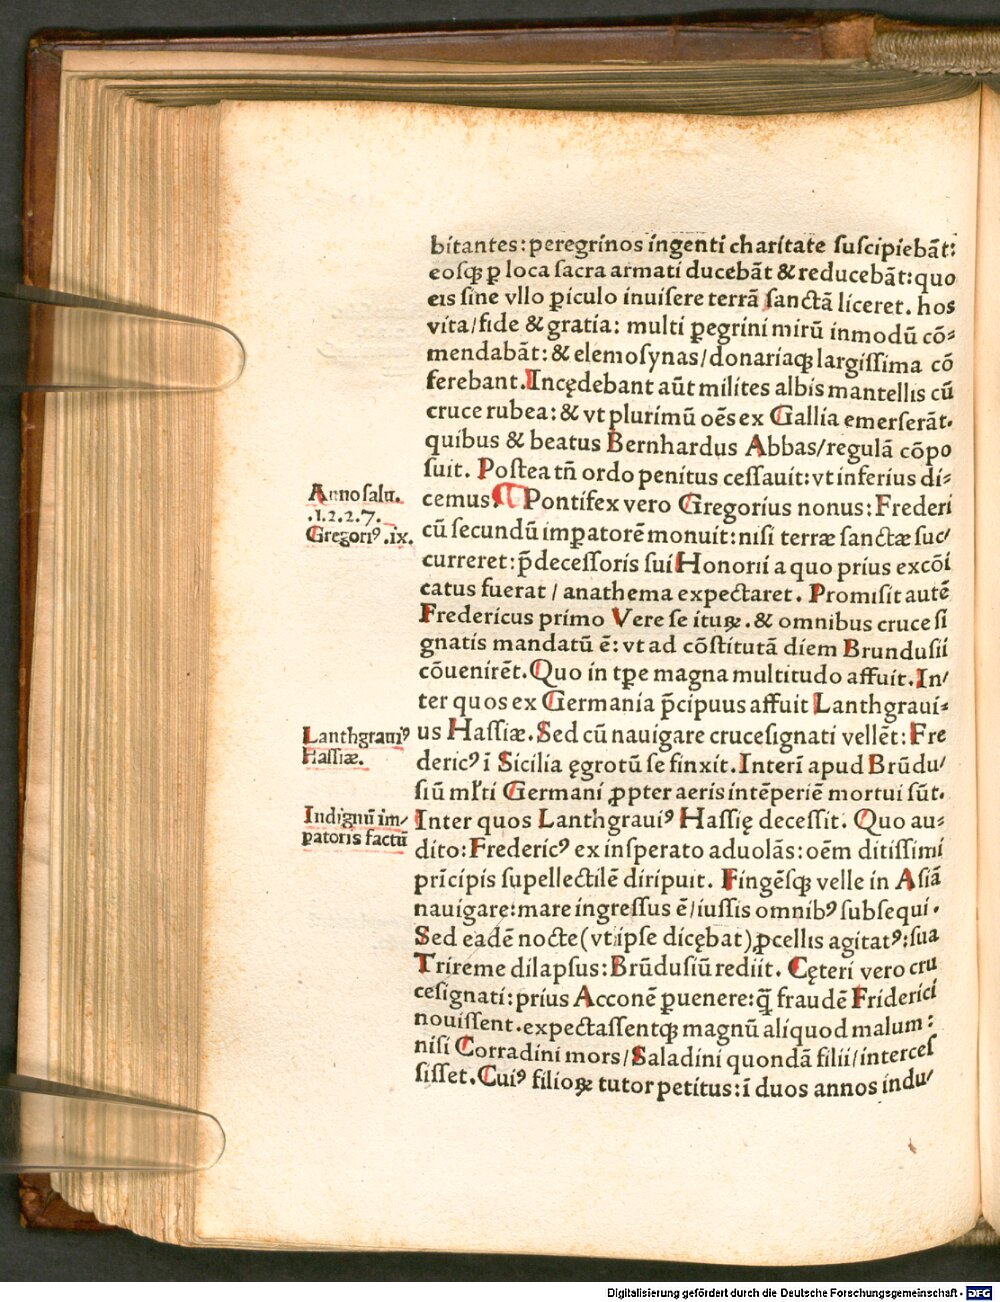 bitantes: peregrinos ingenti charitate ſuſcipiebāt:
eoſqꝫ ꝑ loca ſacra armati ducebāt & reducebāt: quo
eis ſine vllo ꝑiculo inuiſere terrā ſanctā liceret. hos
vita/fide & gratia: multi ꝑegrini mirū inmodū cō⸗
mendabāt: & elemoſynas/donariaqꝫ largiſſima cō
ferebant. Incędebant aūt milites albis mantellis cū
cruce rubea: & vt plurimū oēs ex Gallia emerſerāt.
quibus & beatus Bernhardus Abbas/regulā cōpo
ſuit. Poſtea tn̄ ordo penitus ceſſauit: vt inferius di⸗
Anno ſalu.
.1.2.2.7.
Gregoriꝰ .ix.
cemus. ¶ Pontifex vero Gregorius nonus: Frederi
cū ſecundū imꝑatorē monuit: niſi terræ ſanctæ ſuc/
curreret: p̄deceſſoris ſui Honorii a quo prius excōi
catus fuerat / anathema expectaret. Promiſit autē
Fredericus primo Vere ſe ituꝝ. & omnibus cruce ſi
gnatis mandatū ē: vt ad cōſtitutā diem Brunduſii
cōuenirēt. Quo in tꝑe magna multitudo affuit. In/
ter quos ex Germania p̄cipuus affuit Lanthgraui⸗
Lanthgrauiꝰ
Haſſiæ.
us Haſſiæ. Sed cū nauigare cruceſignati vellēt: Fre
dericꝰ ī Sicilia ęgrotū ſe finxit. Interī apud Brūdu/
ſiū ml̄ti Germani ꝓpter aeris intēperiē mortui ſūt.
Indignū im/
ꝑatoris factū
Inter quos Lanthgrauiꝰ Haſſię deceſſit. Quo au⸗
dito: Fredericꝰ ex inſperato aduolās: oēm ditiſſimi
prīcipis ſupellectilē diripuit. Fingēſqꝫ velle in Aſiā
nauigare: mare ingreſſus ē/iuſſis omnibꝰ ſubſequi.
Sed eadē nocte (vt ipſe dicębat) ꝓcellis agitatꝰ: ſua
Trireme dilapſus: Brūduſiū rediit. Cęteri vero cru
ceſignati: prius Acconē ꝑuenere: q̄ fraudē Friderici
nouiſſent. expectaſſentqꝫ magnū aliquod malum:
niſi Corradini mors/Saladini quondā filii/interceſ
ſiſſet. Cuiꝰ filioꝝ tutor petitus: ī duos annos indu/
Digitalisierung gefördert durch die Deutsche Forschungsgemeinschaft - DFG